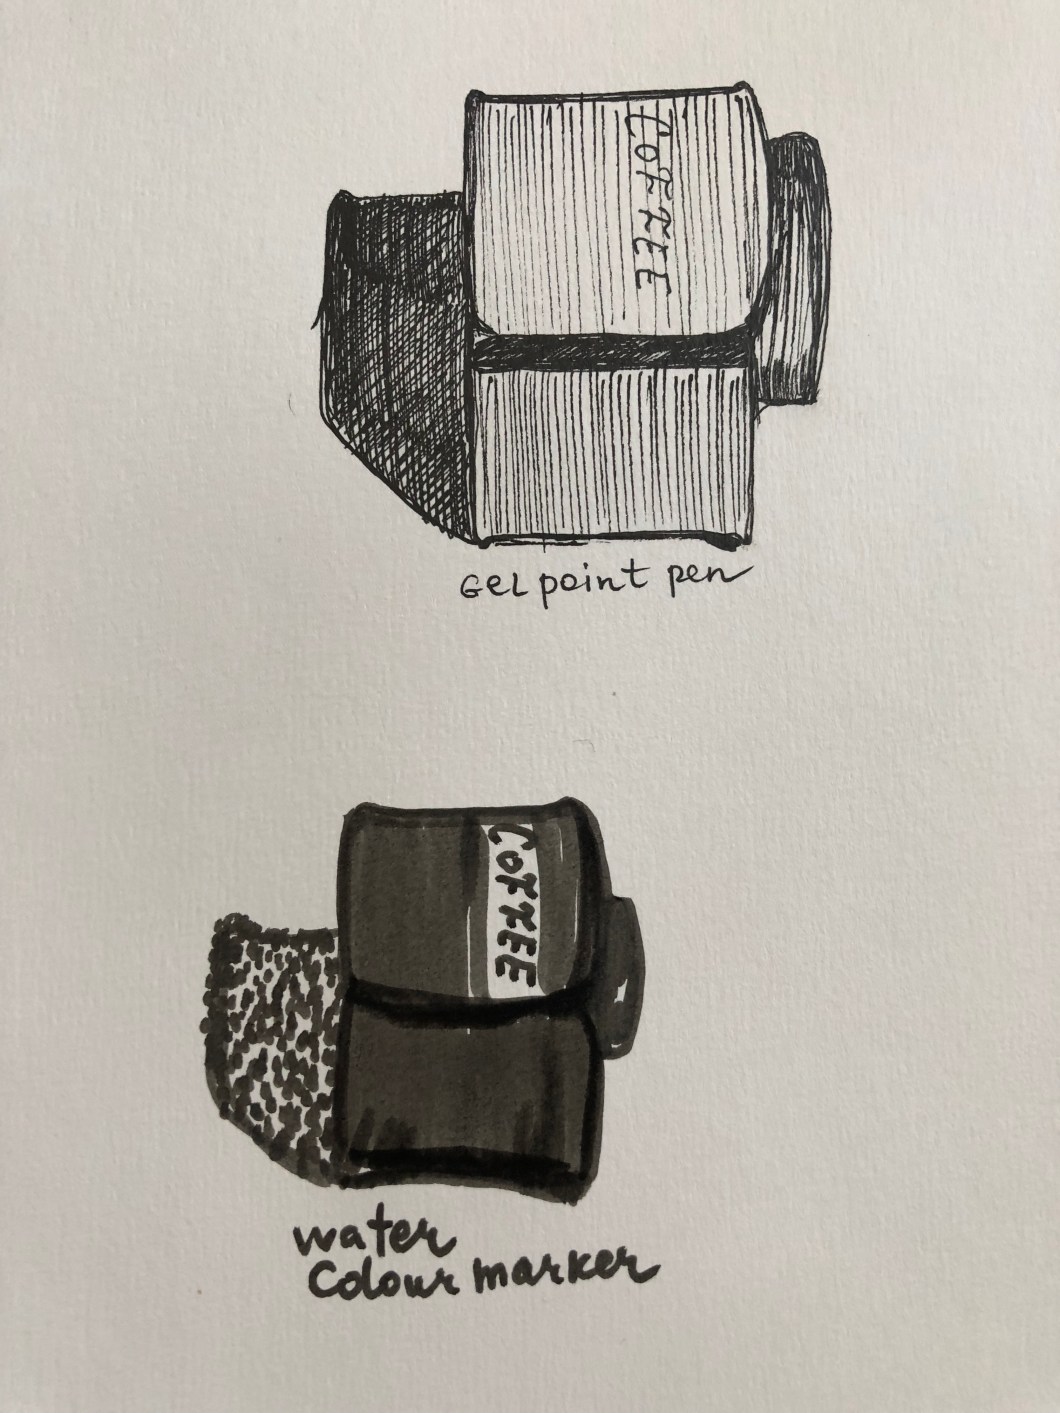 COFFEE
Gel point pen
COFFEE
water
Colour marker